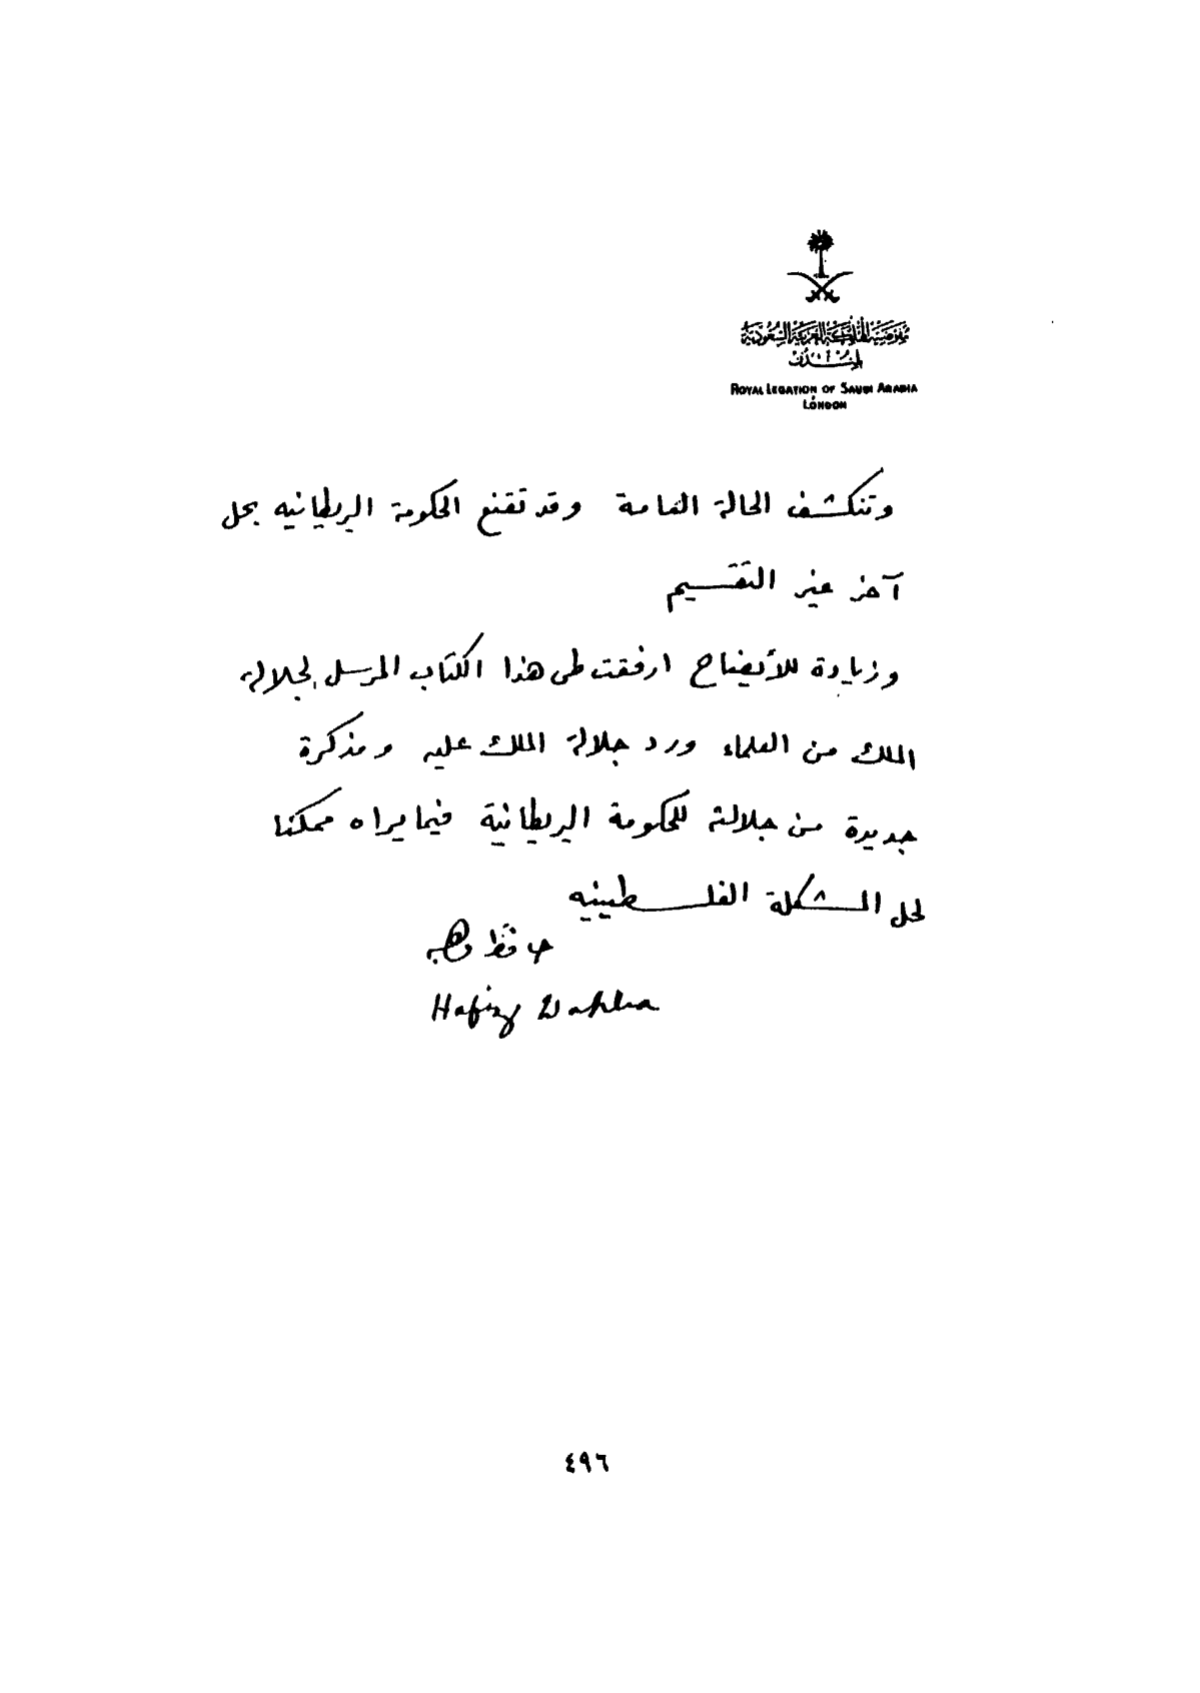 مفوضية المملكة العربية السعودية
لندن
ROYAL LEGATION OF SAUDI ARABIA
LONDON
وتنكشف الحالة العامة وقد تقنع الحكومة البريطانيه بحل
آخر غير التقسيم
وزيادة للأيضاح ارفقت طى هذا الكتاب المرسل لجلالة
الملك من العلماء ورد جلالة الملك عليه ومذكرة
جديدة من جلالته للحكومة البريطانية فيما يراه ممكنا
لحل المشكلة الفلسطينيه
حافظ وهبه
Hafiz Wahba
٤٩٦